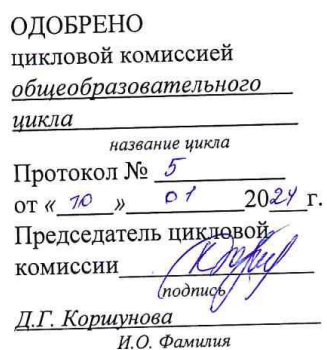 ОДОБРЕНО
цикловой комиссией
общеобразовательного
цикла
название цикла
Протокол № 5
от « 10 » 01 2024 г.
Председатель цикловой
комиссии
(подпись)
Д.Г. Коршунова
И.О. Фамилия